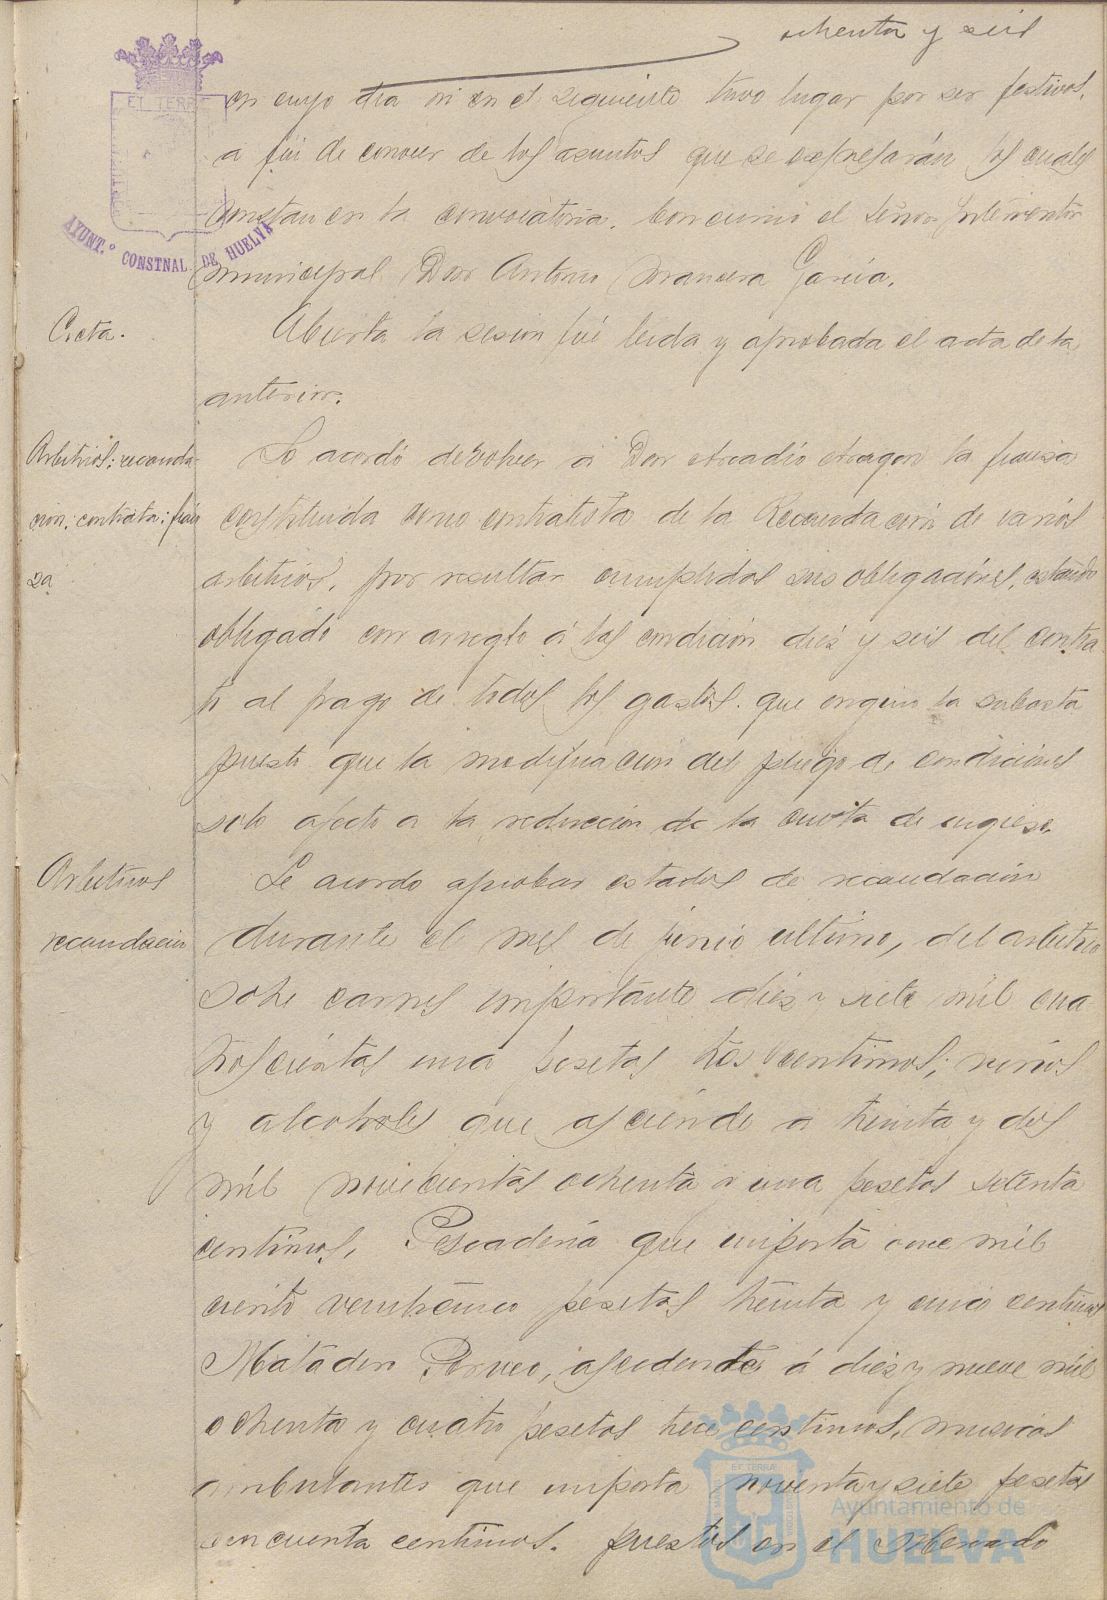 ochenta y seis
ET TERRÆ
AYUNT.º CONSTNAL DE HUELVA
en cuyo dia ni en el siguiente tuvo lugar por ser festivos,
a fin de conocer de los asuntos que se expresarán los cuales
constan en la convocatoria. Concurrió el Señor Interventor
municipal Don Antonio Mancera García.
Acta.
Abierta la sesion fué leida y aprobada el acta de la
anterior.
Arbitrios: recauda-
cion: contrata: fian
za
Se acordó devolver á Don Arcadio Aragon la fianza
constituida como contratista de la Recaudacion de varios
arbitrios, por resultar cumplidas sus obligaciones, estando
obligado con arreglo á las condición diez y seis del contra-
to al pago de todos los gastos que origino la subasta
puesto que la modificacion del pliego de condiciones
solo afecto a la reduccion de la cuota de ingreso.
Arbitrios
recaudacion
Se acordo aprobar estados de recaudacion
durante el mes de junio ultimo, del arbitrio
sobre carnes importante diez y siete mil cua-
troscientas una pesetas tres centimos; vinos
y alcoholes que asciende a treinta y dos
mil novecientas ochenta y una pesetas setenta
centimos, Pescaderia que importa once mil
ciento veinticinco pesetas treinta y cinco centimos
Matadero Porcuno, ascendente á diez y nueve mil
ochenta y cuatro pesetas trece centimos, musicas
ambulantes que importa noventa y siete pesetas
cincuenta centimos. puestos en el Mercado
ET TERRÆ
Ayuntamiento de
HUELVA